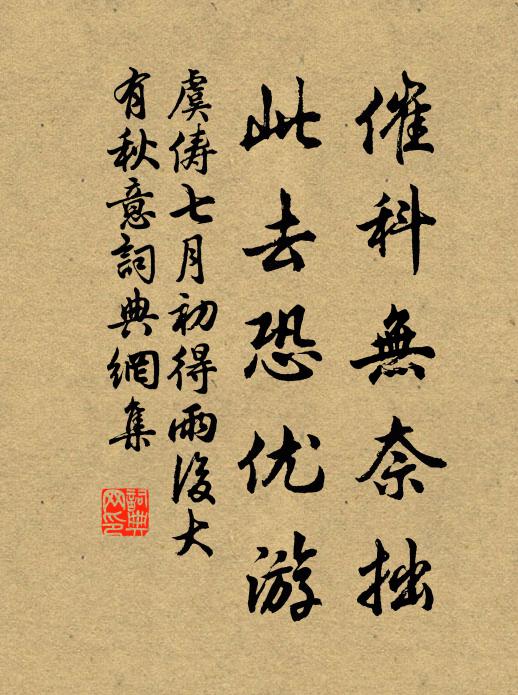 催科無奈拙
此去恐优游
虞儔七月初得雨後大
有秋意詞典網集
詞典
网印